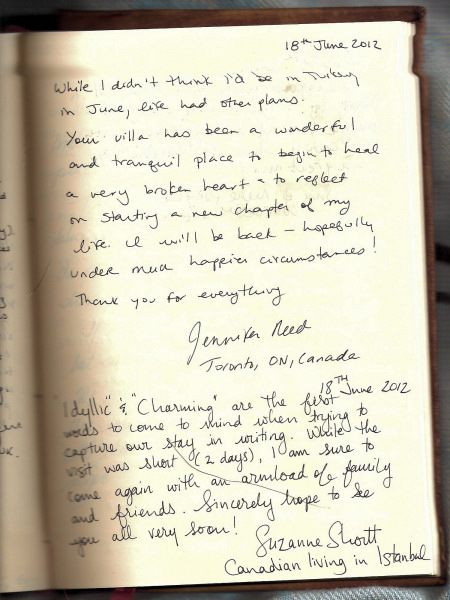 18th June 2012
While I didn't think I'd be in Turkey
in June, life had other plans.
Your villa has been a wonderful
and tranquil place to begin to heal
a very broken heart & to reflect
on starting a new chapter of my
life. I will be back – hopefully
under much happier circumstances!
Thank you for everything
Jennifer Reed
Toronto, ON, Canada
18TH June 2012
"Idyllic" & "Charming" are the first
words to come to mind when trying to
capture our stay in writing. While the
visit was short (2 days), I am sure to
come again with an armload of family
and friends. Sincerely hope to see
you all very soon!
Suzanne Shortt
Canadian living in Istanbul